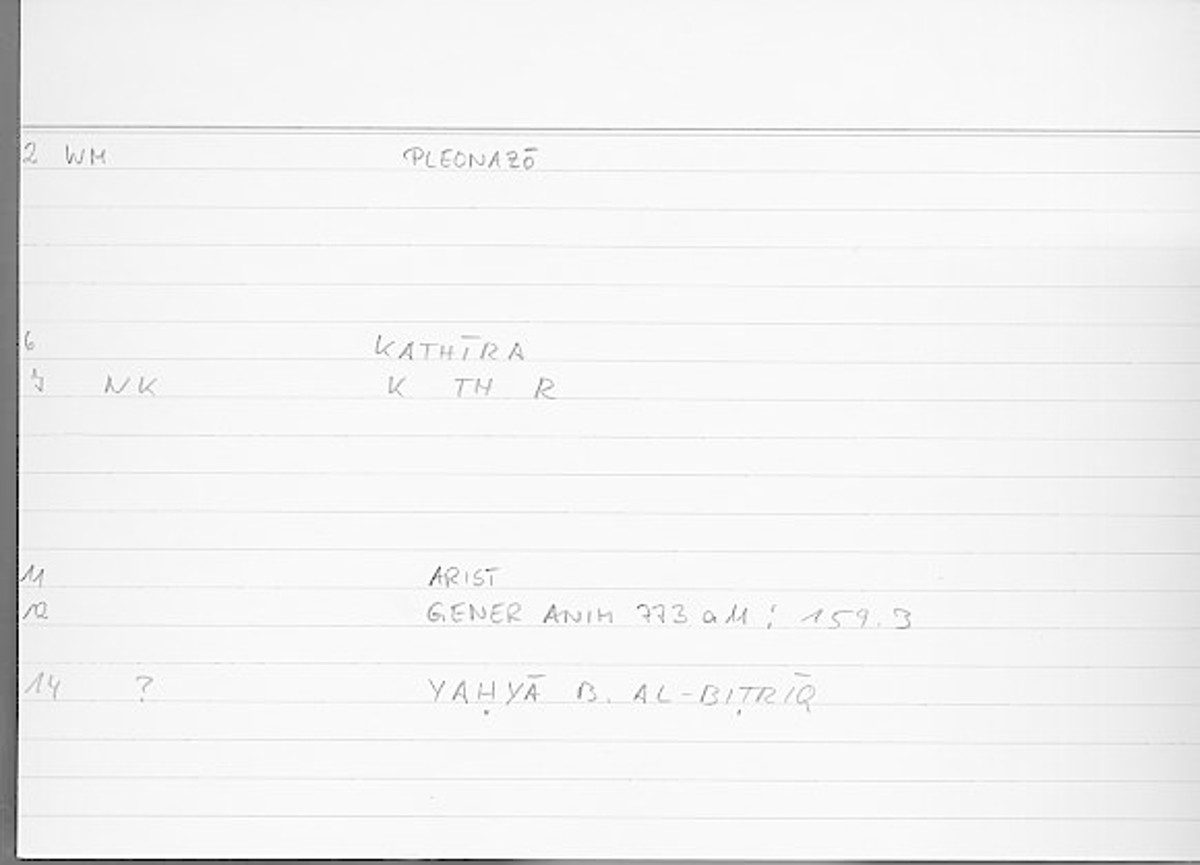 2 WM PLEONAZŌ
6 KATHĪRA
7 NK K TH R
11 ARIST
12 GENER ANIM 773 a 11 : 159.3
14 ? YAḤYĀ B. AL-BIṬRĪQ